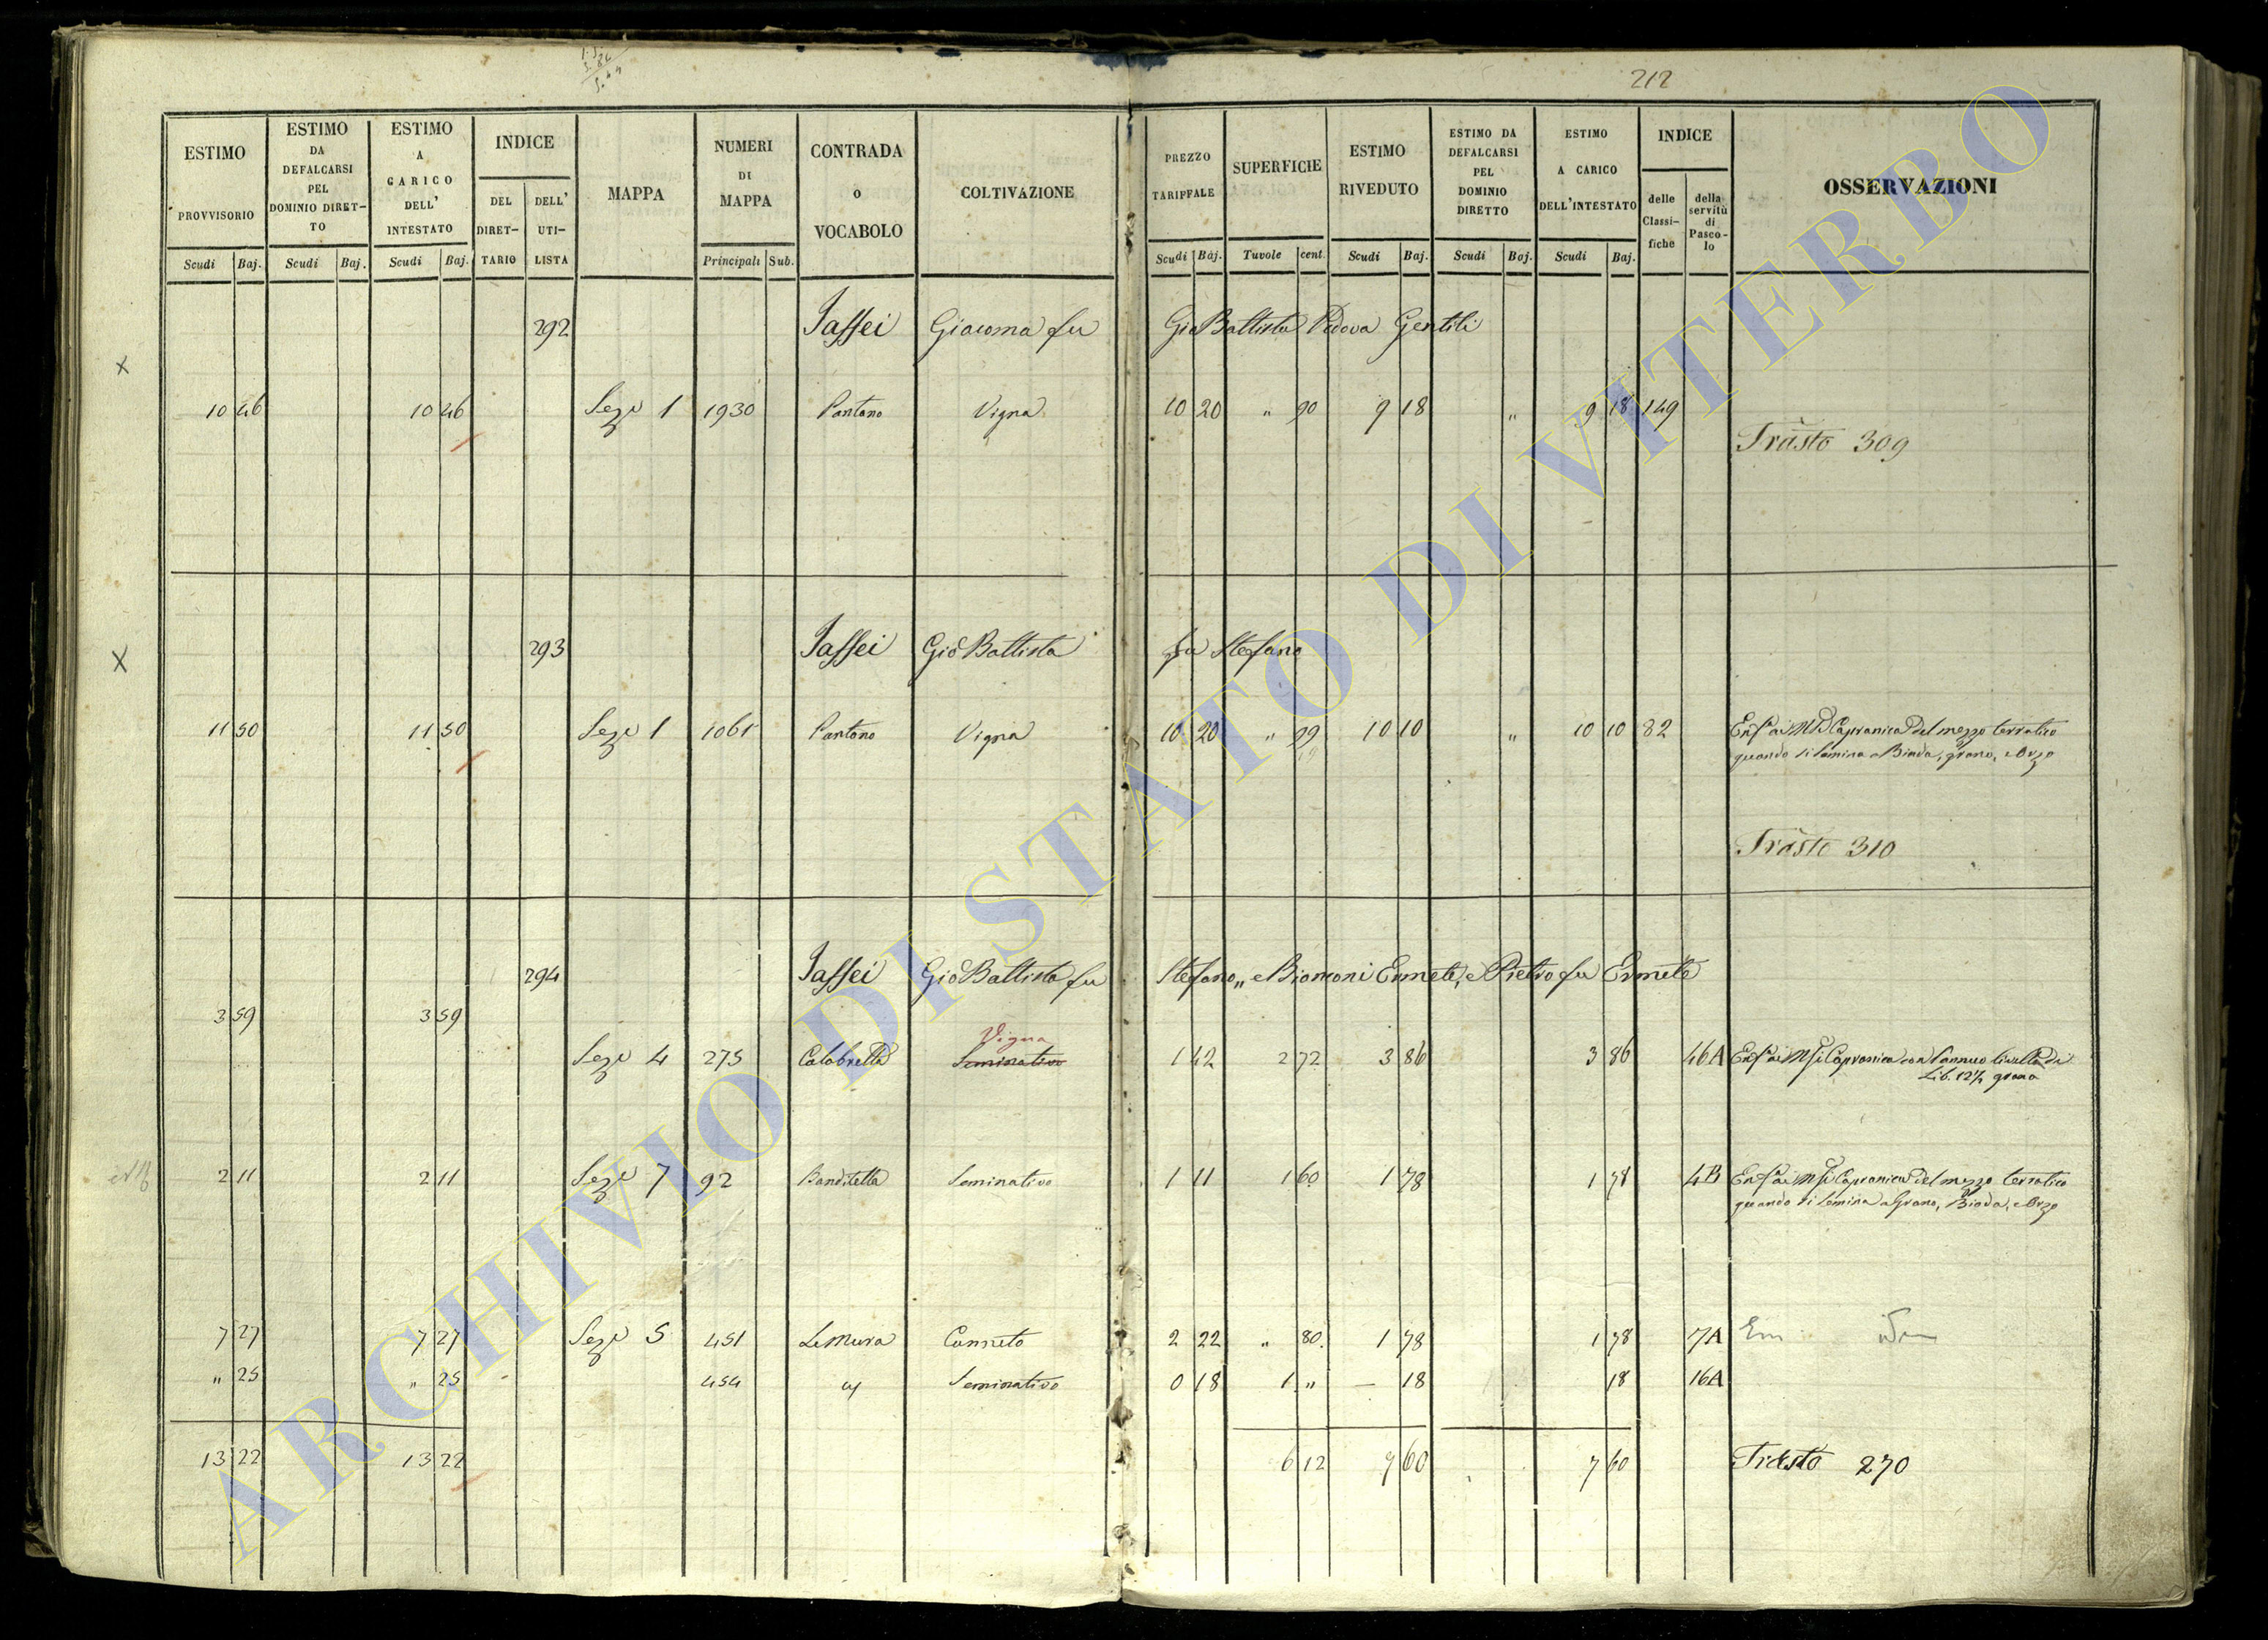 212
ESTIMO PROVVISORIO Scudi Baj.
ESTIMO DA DEFALCARSI PEL DOMINIO DIRET-TO Scudi Baj.
ESTIMO A CARICO DELL' INTESTATO Scudi Baj.
INDICE DEL DIRET-TARIO DELL' UTI-LISTA
MAPPA
NUMERI DI MAPPA Principali Sub.
CONTRADA o VOCABOLO
COLTIVAZIONE
PREZZO TARIFFALE Scudi Baj.
SUPERFICIE Tavole cent.
ESTIMO RIVEDUTO Scudi Baj.
ESTIMO DA DEFALCARSI PEL DOMINIO DIRETTO Scudi Baj.
ESTIMO A CARICO DELL'INTESTATO Scudi Baj.
INDICE delle Classi-fiche della servitù di Pasco-lo
OSSERVAZIONI
292 Jaffei Giacoma fu Gio Battista Vedova Gentili
X
10 46 10 46 Seze 1 1930 Pantano Vigna 10 20 " 90 9 18 " 9 18 149
Trasto 309
293 Jaffei Gio Battista fu Stefano
X
11 50 11 50 Seze 1 1061 Pantano Vigna 10 20 " 99 10 10 " 10 10 82 Capranica del mezzo terratico
quando si semina a Biada, grano, e Orzo
Trasto 310
294 Jaffei Gio Battista fu Stefano,, e Biomoni Ermete, e Pietro fu Ermete
3 59 3 59
Vigna
Seze 4 275 Calabretta Seminativo 1 42 2 72 3 86 3 86 46A Capranica con l'annuo livello di
Lib. 12½ grano
2 11 2 11 Seze 7 92 Banditella Seminativo 1 11 1 60 1 78 1 78 4B Capranica del mezzo terratico
quando si semina a Grano, Biada, e Orzo
7 27 7 27 Seze 5 451 Le Mura Canneto 2 22 " 80 1 78 1 78 7A
" 25 " 25 454 Seminativo 0 18 1 " — 18 18 16A
13 22 13 22 6 12 7 60 7 60 Trasto 270
ARCHIVIO DI STATO DI VITERBO